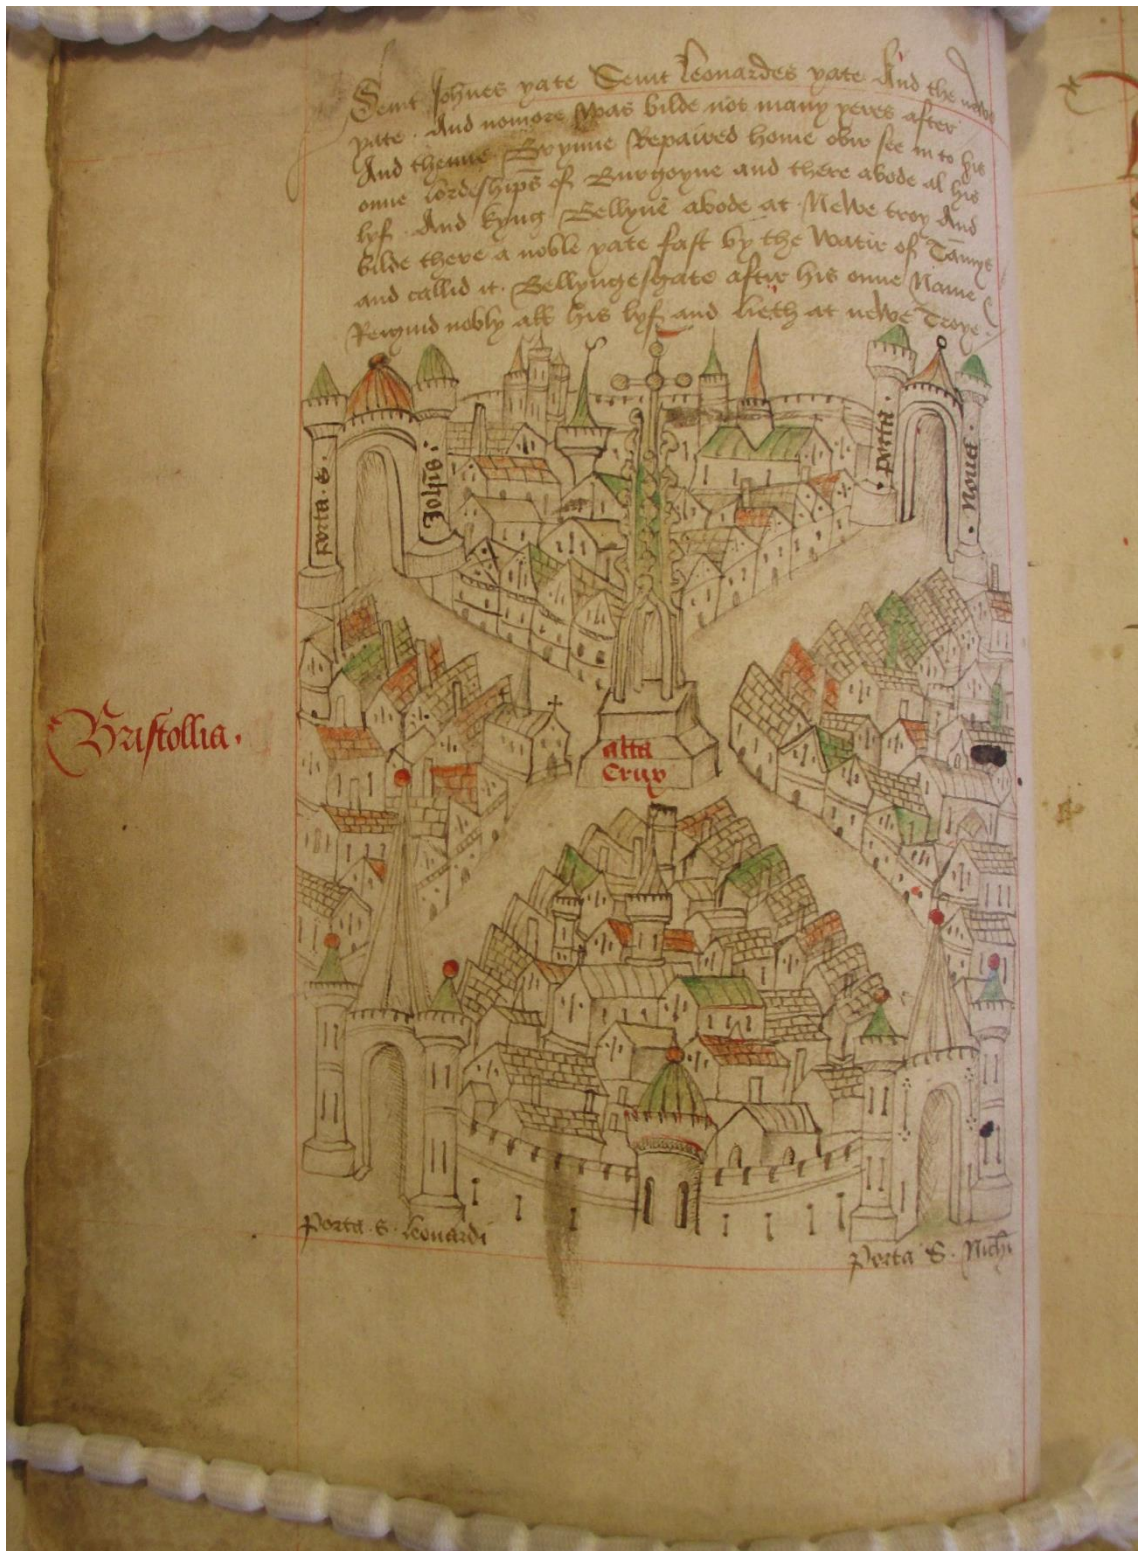 Seint Joħnes yate Seint Leonardes yate And the newe
yate. And nomore was bilde not many yeres after
And thenne Brynne Repaired home ovir see in to his
onne lordeships of Burgoyne and there abode al his
lyf. And kyng Bellynē abode at Newe troy And
bilde there a noble yate fast by the Watir of Tamyse
and callid it. Bellyngesgate aftir his onne Name
Reignid nobly all his lyf and lieth at newe Troye.
Porta. S. Joħis.
Porta. Nova.
Bristollia.
alta
Crux
Porta. S. Leonardi
Porta S. Nichi